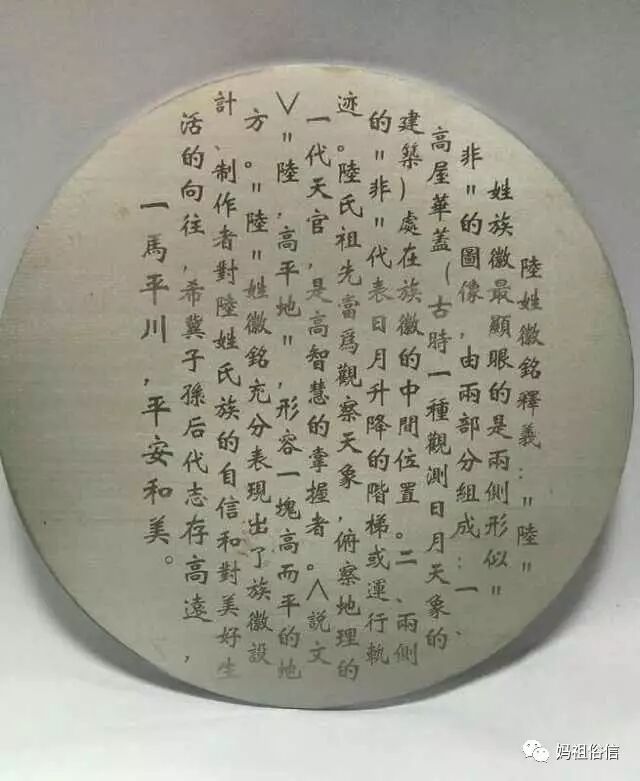 陸姓徽銘釋義:"陸"
姓族徽最顯眼的是兩側形似"
非"的圖像,由兩部分組成:一、
高屋華蓋(古時一種觀測日月天象的
建築)處在族徽的中間位置。二、兩側
的"非"代表日月升降的階梯或運行軌
迹。陸氏祖先當爲觀察天象,俯察地理的
一代天官,是高智慧的掌握者。∧説文
∨"陸,高平地",形容一塊高而平的地
方。"陸"姓徽銘充分表現出了族徽設
計、制作者對陸姓氏族的自信和對美好生
活的向往,希冀子孫后代志存高遠,
一馬平川,平安和美。
妈祖俗信